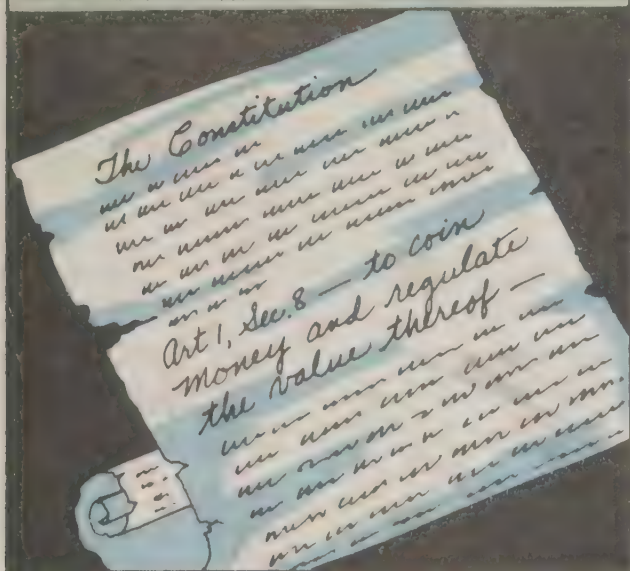 The Constitution
Art 1, Sec. 8 — to coin
money and regulate
the value thereof —